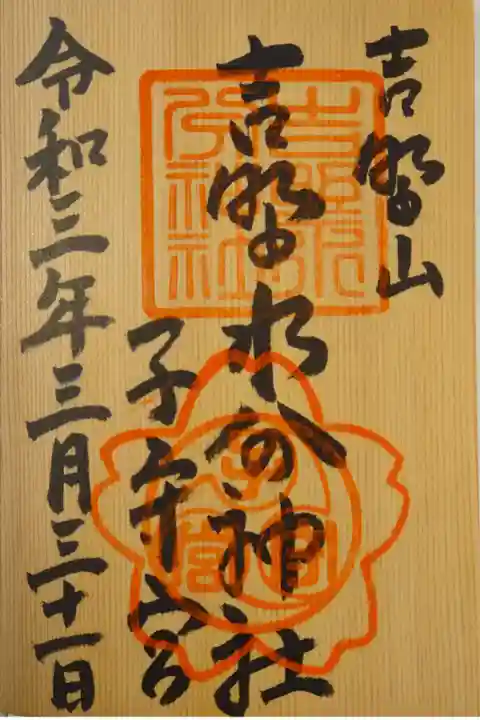 吉野山
吉野水分神社
子守宮
令和三年三月三十一日